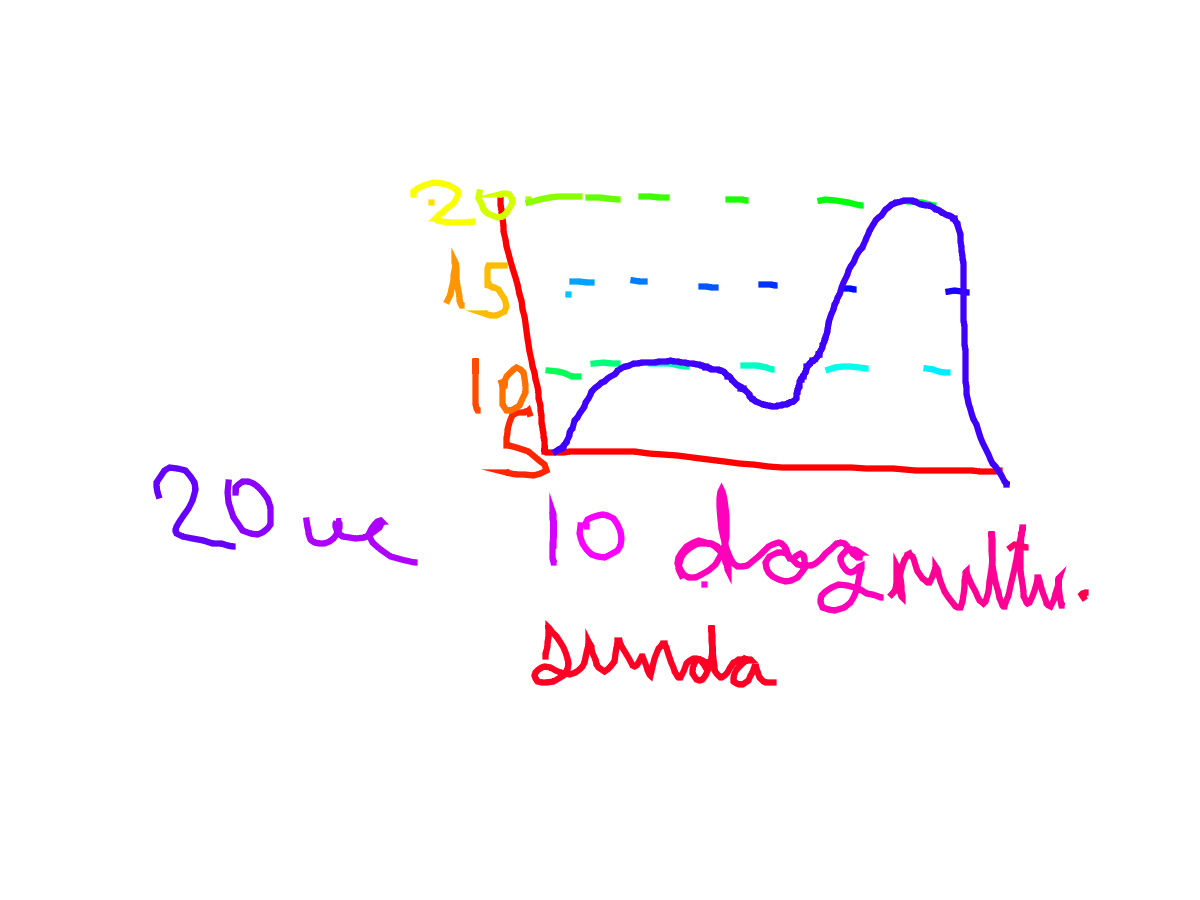 20
15
10
5
20 ve 10 dogrultu.
sunda